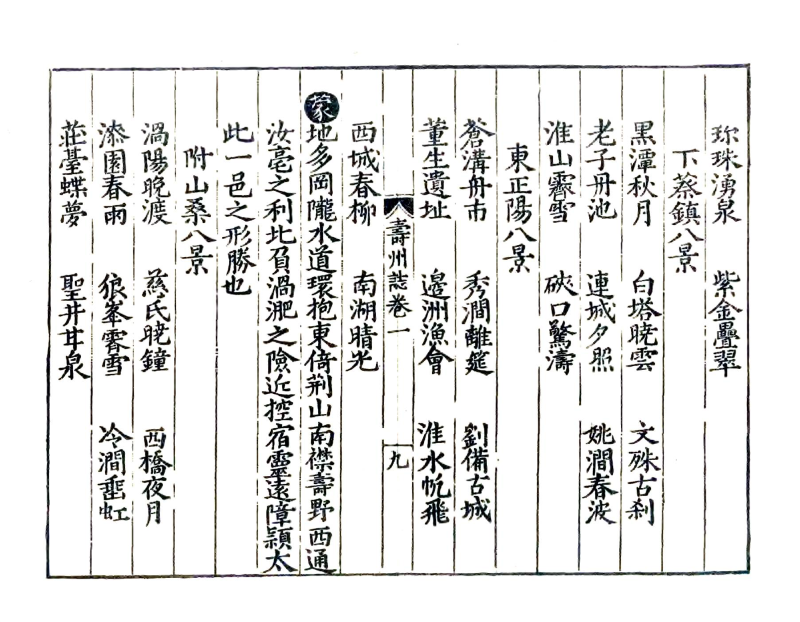 珎珠湧泉　紫金疊翠
下蔡鎮八景
黑潭秋月　白塔曉雲　文殊古刹
老子丹池　連城夕照　姚澗春波
淮山霽雪　硤口驚濤
東正陽八景
蒼溝舟市　秀澗離筵　劉備古城
董生遺址　邉洲漁會　淮水帆飛
西城春柳　南湖晴光
壽州誌卷一　九
蒙地多岡隴水道環抱東倚荆山南襟壽野西通
汝亳之利北負渦淝之險近控宿靈遠障潁太
此一邑之形勝也
附山桑八景
渦陽晩渡　慈氏曉鐘　西橋夜月
漆園春雨　狼峯霽雪　冷澗垂虹
莊臺蝶夢　聖井甘泉